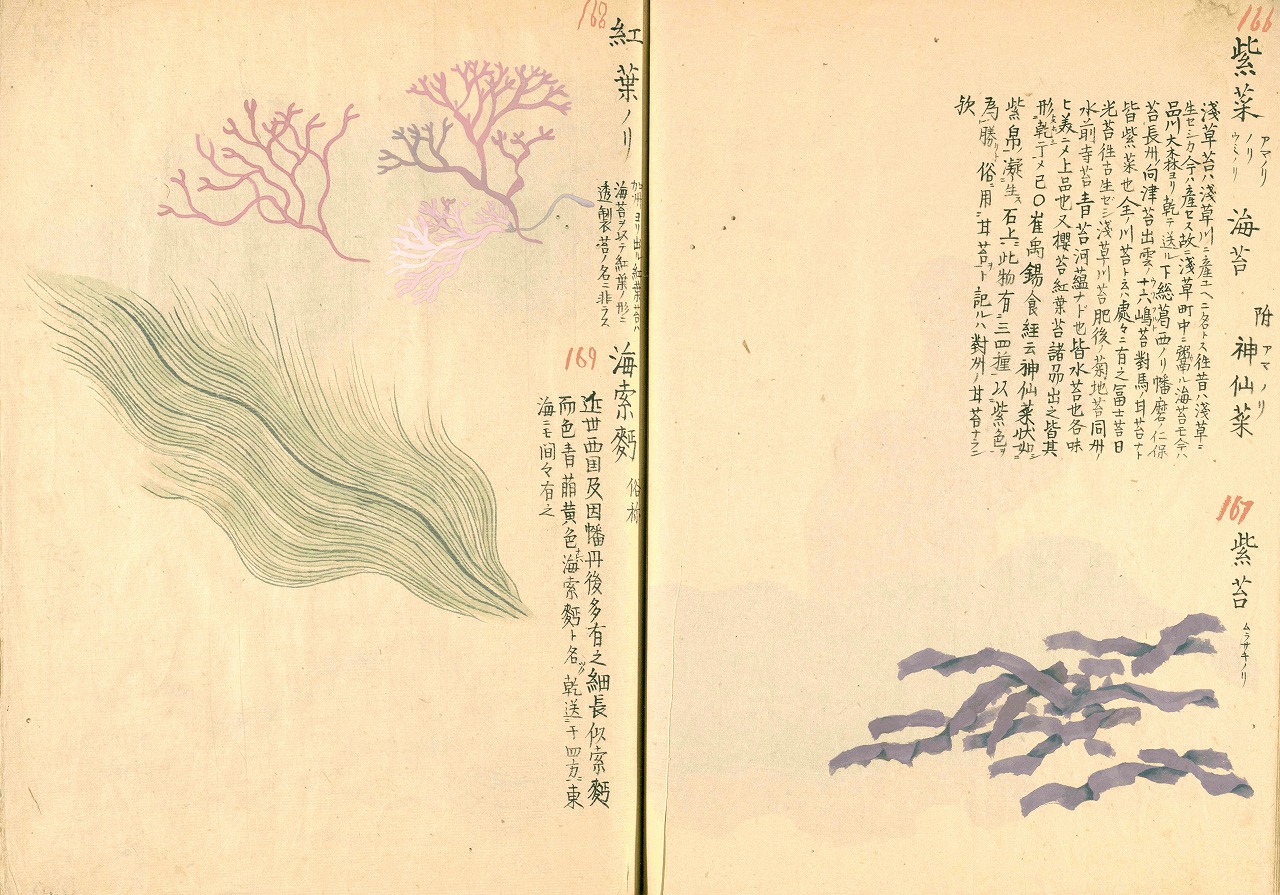 166
紫菜 アマノリ ノリ ウミノリ 海苔 附 神仙菜 アマノリ
淺草苔ハ淺草川ニ産エヘニ名トス徃昔ハ淺草ニ
生セシカ今ハ産セス故ニ淺草町中ニ鬻ル海苔モ今ハ
品川大森ヨリ乾テ送ル下総葛西ノリ幡磨ノ仁保
苔長州向津苔出雲ノ十六嶋苔對馬ノ甘苔ナト
皆紫菜也 川苔ト云ハ處々ニ有之冨士苔日
光苔徃古生セシ淺草川苔肥後ノ菊地苔同州ノ
水前寺苔青苔河蘊ナド也皆水苔也各味
ヒ美ニメ上品也又櫻苔紅葉苔諸州出之皆其
形乾テメ已〇崔禹錫食経云神仙菜状如
紫帛凝生ス石上ニ此物有三四種以紫色ヲ
為勝俗用甘苔ヲト記ルハ對州ノ甘苔ナラン
欤
167
紫苔 ムラサキノリ
168
紅葉ノリ
加州ヨリ出ル紅葉苔ハ
海苔ヲ以テ紅葉ノ形ニ
透製苔ノ名ニ非ラス
169
海索麪 俗称
近世西国及因幡丹後多有之細長似索麪
而色青萠黄色海索麪ト名ツク乾送ニ千四方ニ東
海ニモ间々有之